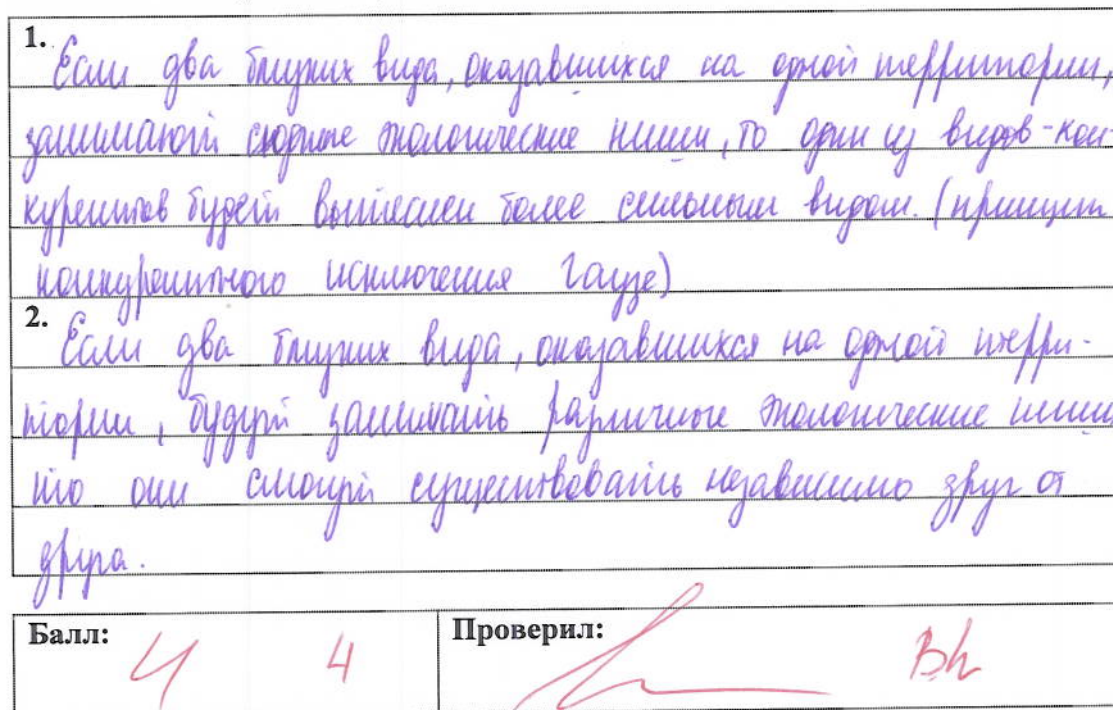 1. Если два близких вида, оказавшихся на одной территории,
занимают сходные экологические ниши, то один из видов-кон-
курентов будет вытеснен более сильным видом. (принцип
конкурентного исключения Гаузе)
2. Если два близких вида, оказавшихся на одной терри-
тории, будут занимать различные экологические ниши
то они смогут существовать независимо друг от
друга.
Балл: 4 4 Проверил: